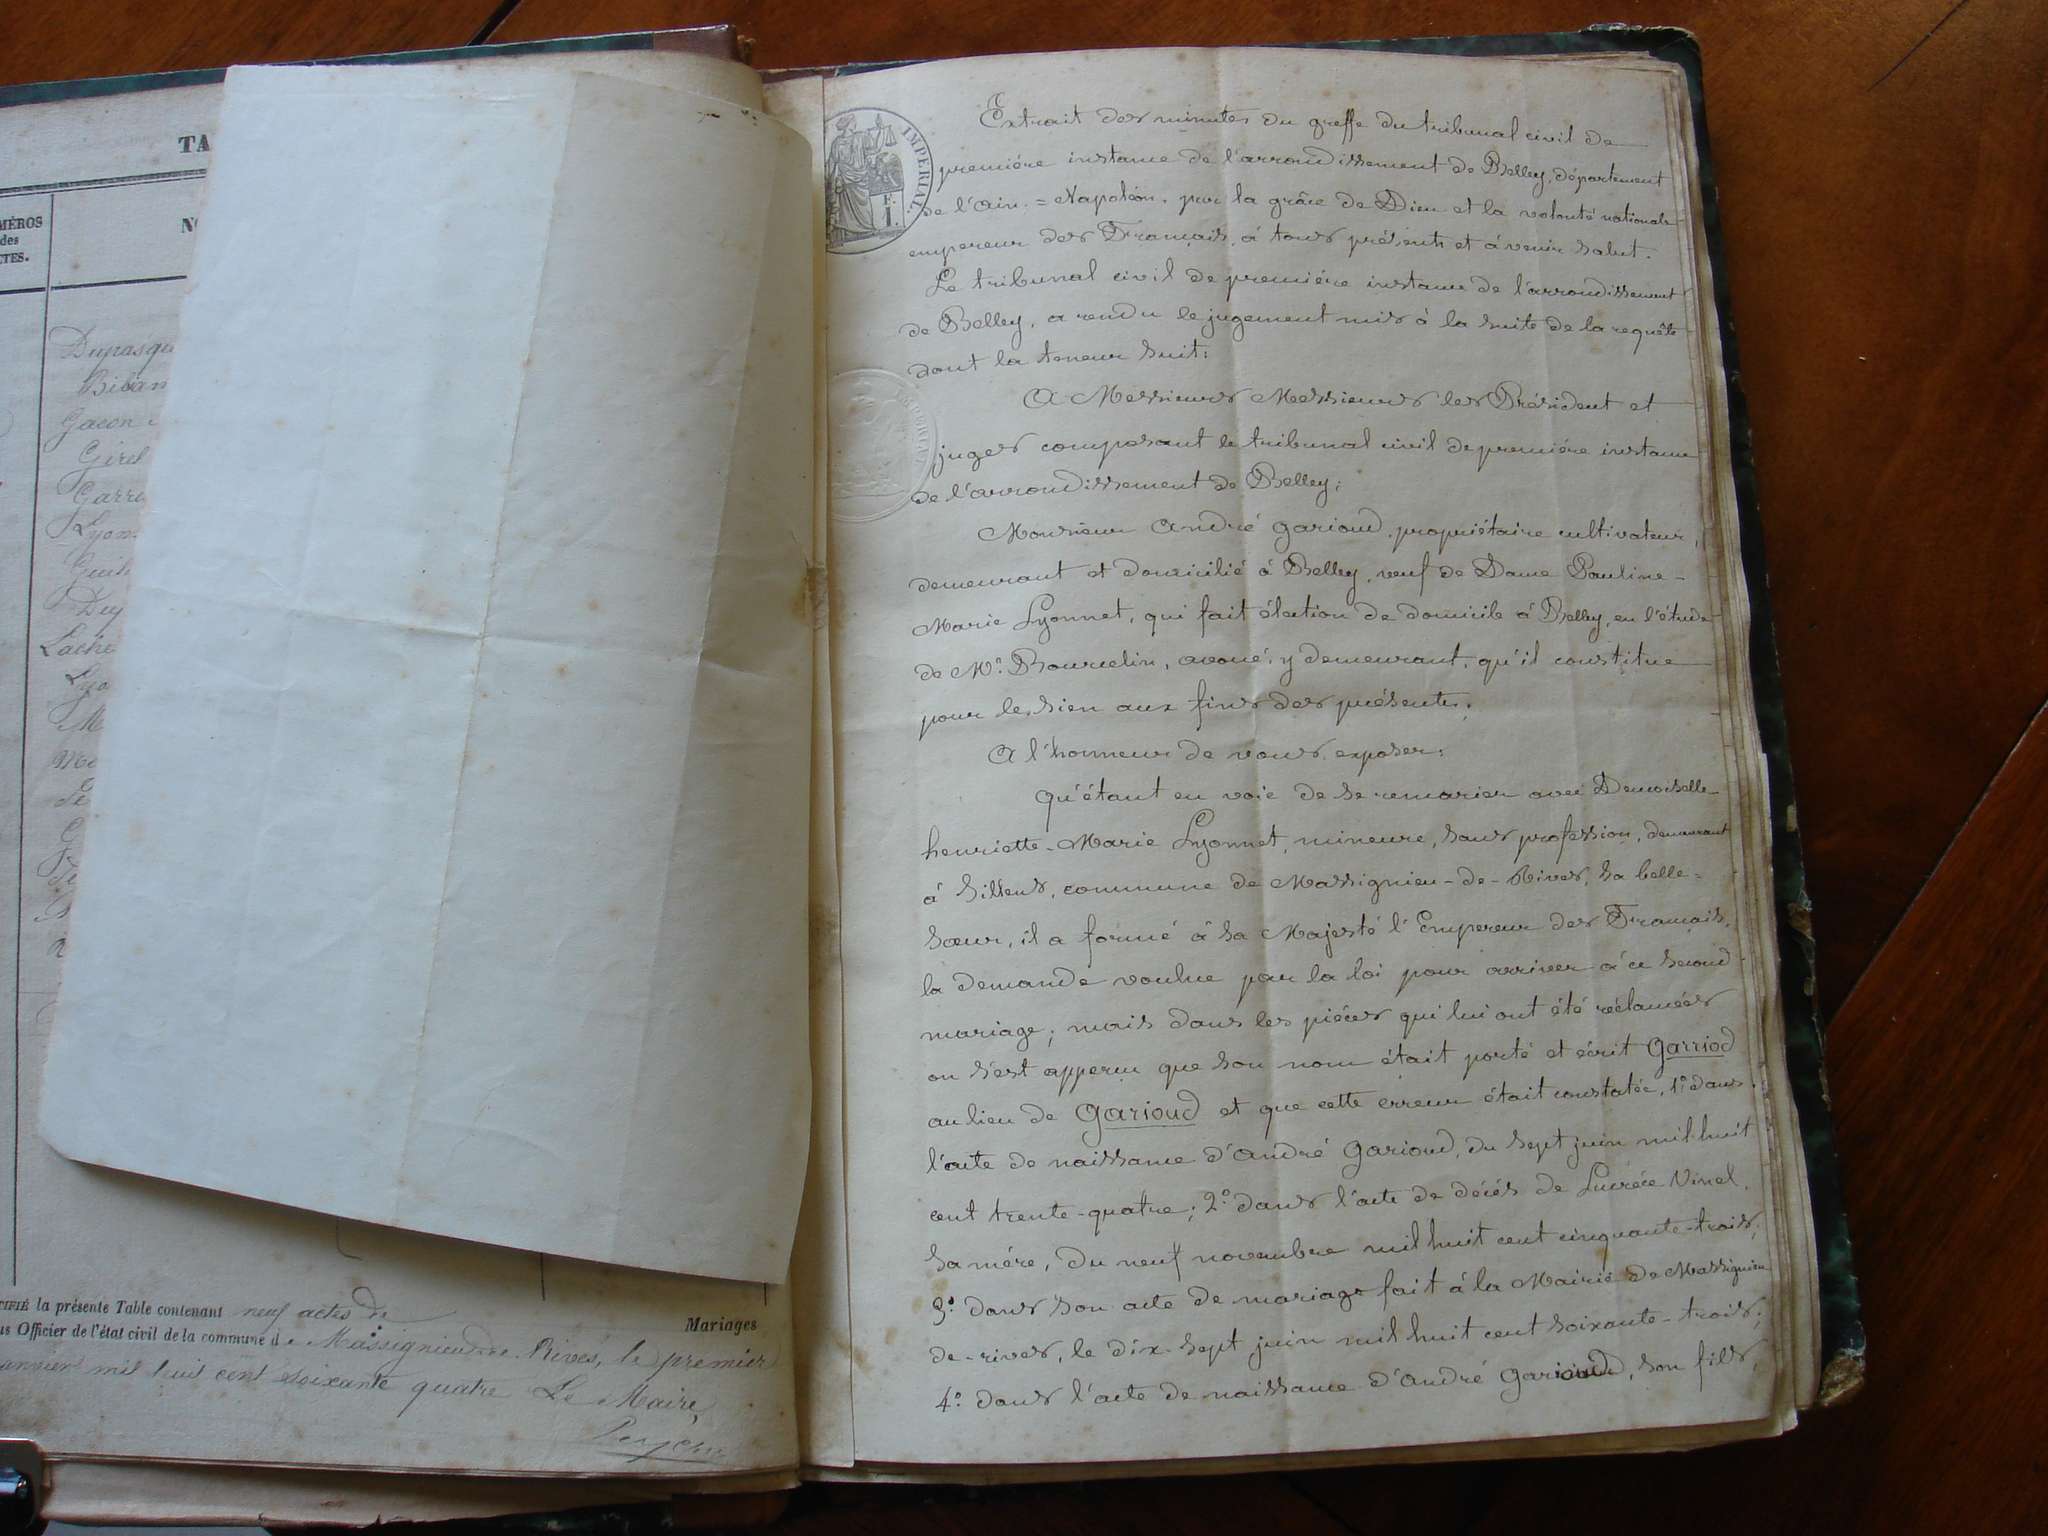 TA
MÉROS
des
CTES.
Dupasqu
Giban
Gacon
Girel
Garri
Lyon
Guil
Lache
Lyo
M
IFIÉ la présente Table contenant neuf actes de
Mariages
us Officier de l'état civil de la commune de Massignieu de Rives, le premier
janvier mil huit cent soixante quatre Le Maire,
IMPÉRIAL.
F.
1.
Extrait des minutes du greffe du tribunal civil de
première instance de l'arrondissement de Belley, département
de l'Ain. = Napoléon, par la grâce de Dieu et la volonté nationale
empereur des Français, à tous présents et à venir salut.
Le tribunal civil de première instance de l'arrondissement
de Belley, a rendu le jugement mis à la suite de la requête
dont la teneur suit:
A Messieurs Messieurs les Président et
juges composant le tribunal civil de première instance
de l'arrondissement de Belley;
Monsieur André Garioud, propriétaire cultivateur,
demeurant et domicilié à Belley, veuf de Dame Pauline-
Marie Lyonnet, qui fait élection de domicile à Belley, en l'étude
de Me. Bourcelin, avoué, y demeurant, qu'il constitue
pour le sien aux fins des présentes;
A l'honneur de vous exposer:
qu'étant en voie de se remarier avec Demoiselle
henriette-Marie Lyonnet, mineure, sans profession, demeurant
à Sillens, commune de Massignieu-de-Rives, sa belle-
sœur, il a formé à sa Majesté l'Empereur des Français,
la demande voulue par la loi pour arriver à ce second
mariage; mais dans les pièces qui lui ont été réclamées
on s'est apperçu que son nom était porté et écrit Garriod
au lieu de Garioud et que cette erreur était constatée, 1.° dans
l'acte de naissance d'André Garioud, du sept juin mil huit
cent trente-quatre; 2.° dans l'acte de décès de Lucrèce Vinel,
sa mère, du neuf novembre mil huit cent cinquante-trois;
3.° dans son acte de mariage fait à la Mairie de Massignieu
de-rives, le dix-sept juin mil huit cent soixante-trois;
4.° dans l'acte de naissance d'André Garioud, son fils,